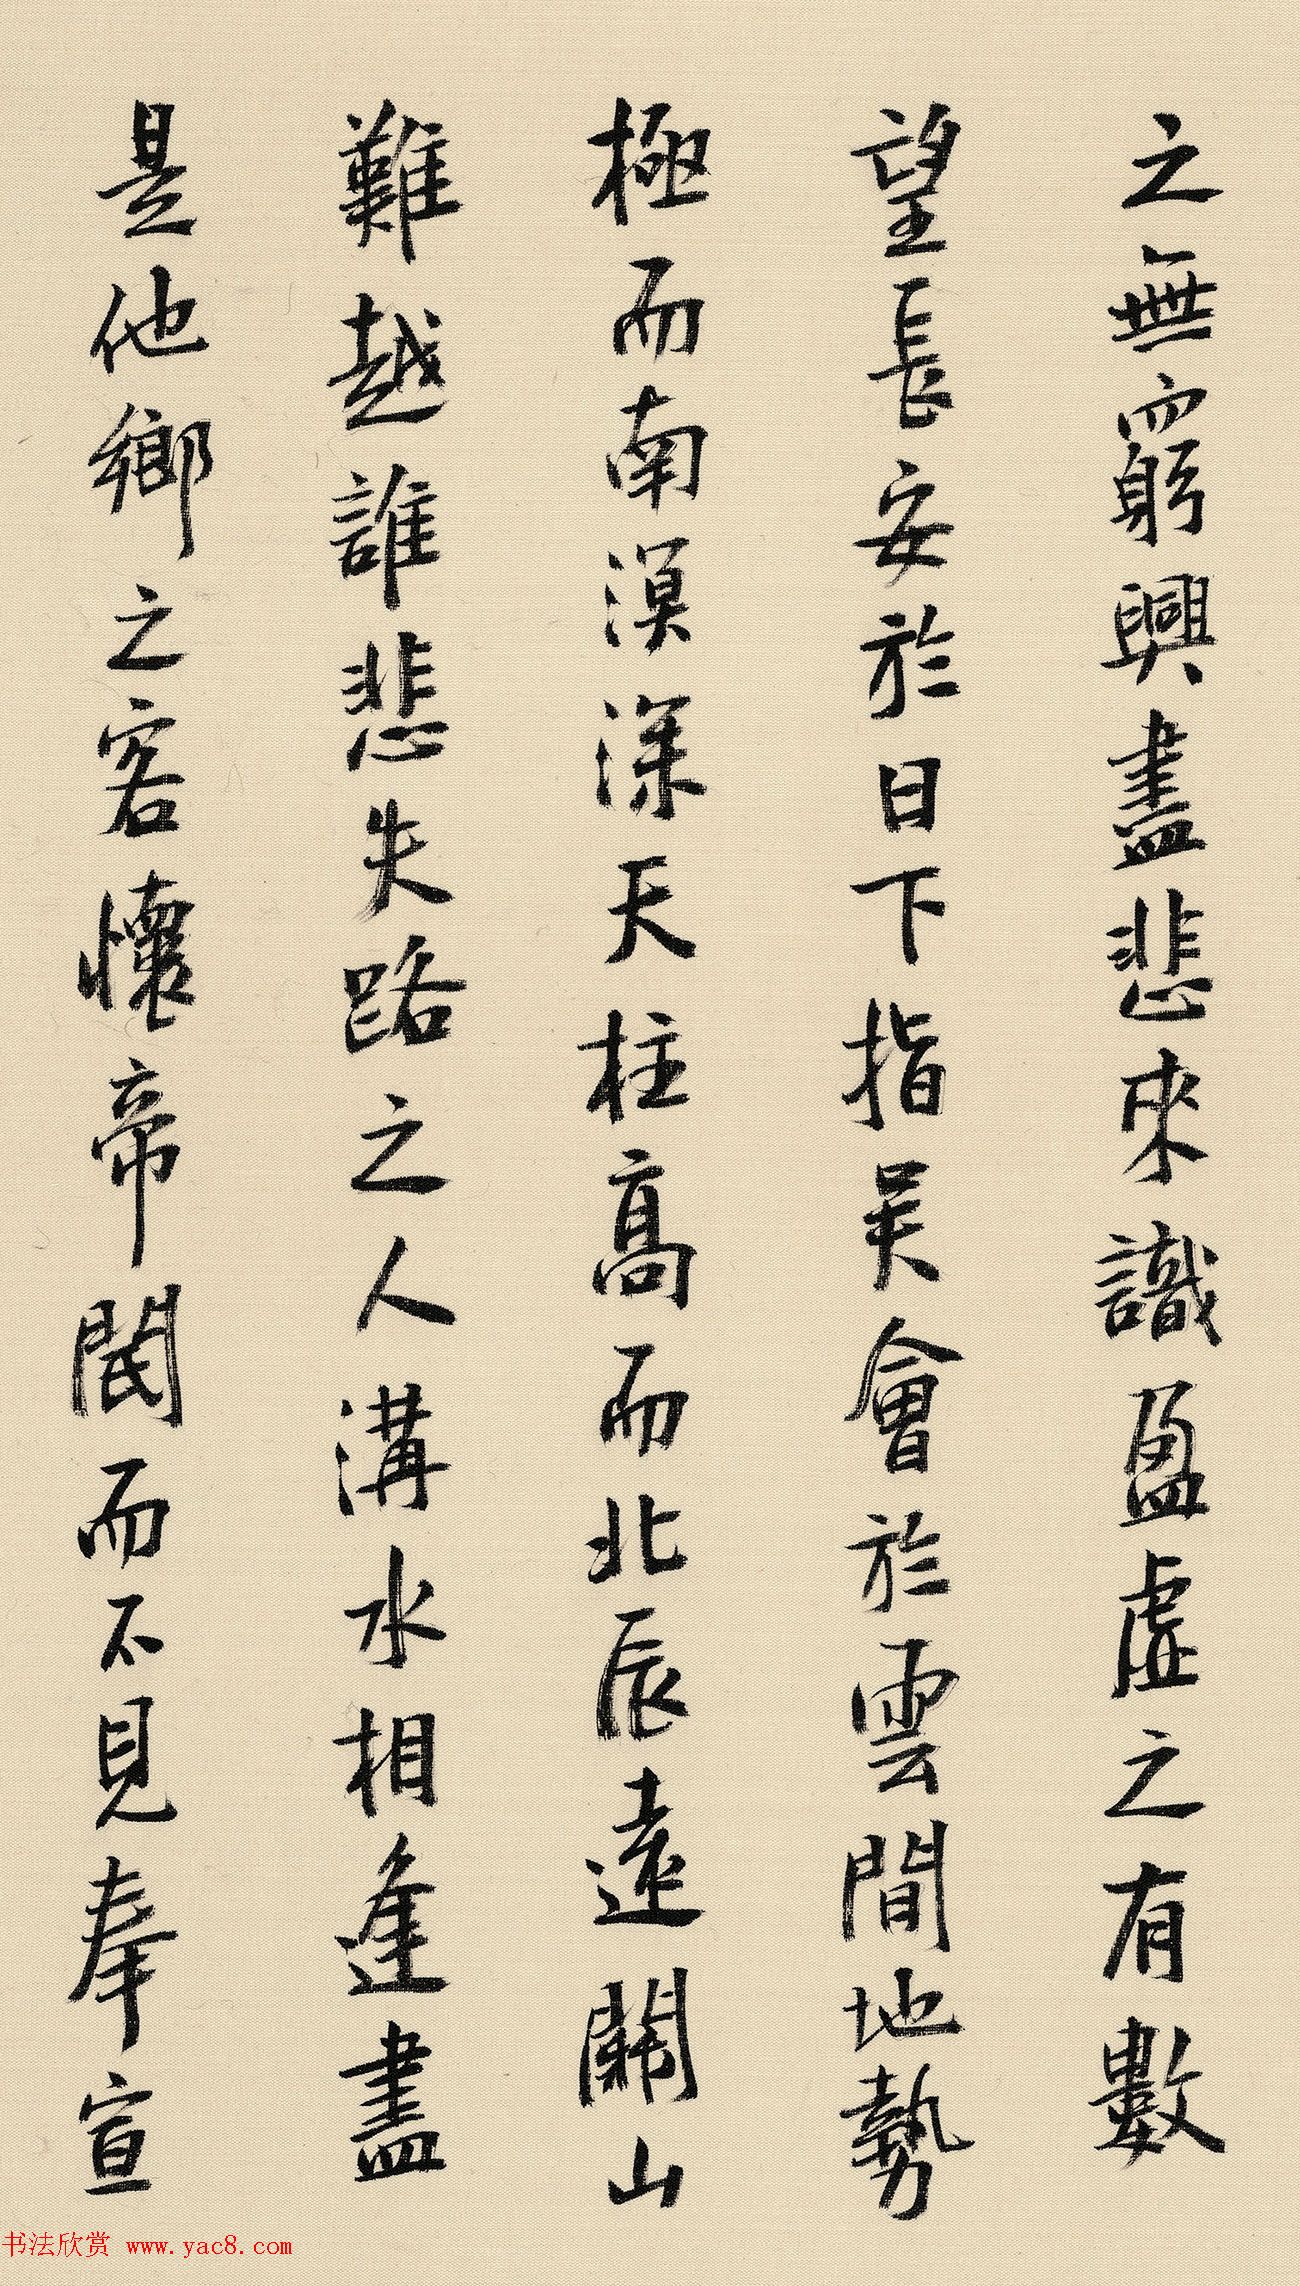 之無窮興盡悲來識盈虛之有數
望長安於日下指吳會於雲間地勢
極而南溟深天柱高而北辰遠關山
難越誰悲失路之人溝水相逢盡
是他鄉之客懷帝閽而不見奉宣
书法欣赏 www.yac8.com